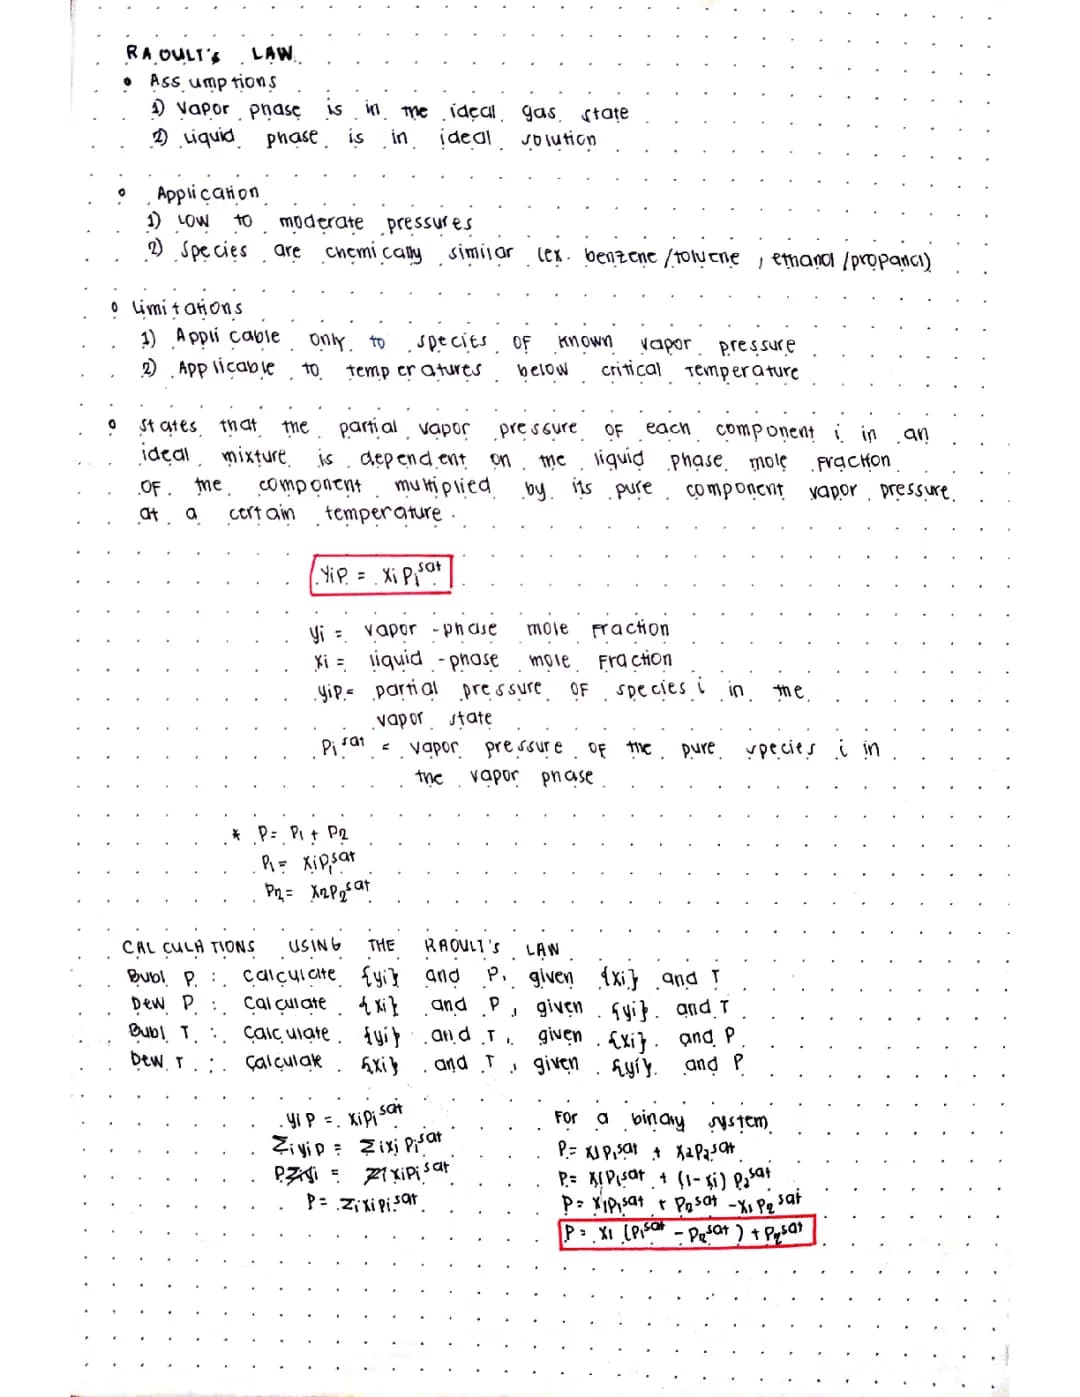 RAOULT'S LAW
• Assumptions
1) Vapor phase is in the ideal gas state
2) Liquid phase is in ideal solution
• Application
1) Low to moderate pressures
2) Species are chemically similar (ex. benzene/toluene, ethanol/propanol)
• Limitations
1) Applicable only to species of known vapor pressure
2) Applicable to temperatures below critical temperature
• States that the partial vapor pressure of each component i in an
ideal mixture is dependent on the liquid phase mole fraction
of the component multiplied by its pure component vapor pressure
at a certain temperature.
yiP = xiPi^sat
yi = vapor-phase mole fraction
xi = liquid-phase mole fraction
yiP = partial pressure of species i in the
vapor state
Pi^sat = vapor pressure of the pure species i in
the vapor phase
* P = P1 + P2
P1 = xiP1^sat
P2 = x2P2^sat
CALCULATIONS USING THE RAOULT'S LAW
Bubl P : calculate {yi} and P, given {xi} and T
Dew P : Calculate {xi} and P, given {yi} and T
Bubl T : Calculate {yi} and T, given {xi} and P
Dew T : Calculate {xi} and T, given {yi} and P
yiP = xiPi^sat
ΣiyiP = Σixi Pi^sat
PΣiyi = ΣixiPi^sat
P = ΣixiPi^sat
For a binary system
P = x1P1^sat + x2P2^sat
P = x1P1^sat + (1-x1) P2^sat
P = x1P1^sat + P2^sat - x1P2^sat
P = x1 (P1^sat - P2^sat) + P2^sat